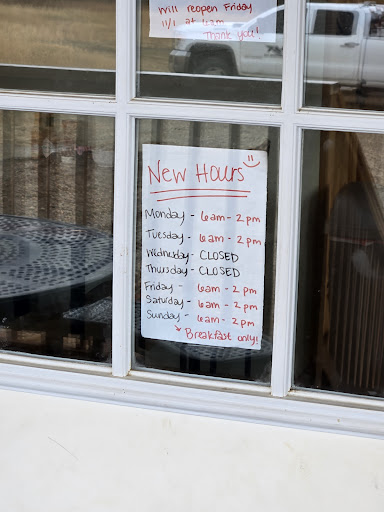 Will reopen Friday
11/1 at 6am
Thank you!
New Hours
Monday - 6am - 2pm
Tuesday - 6am - 2pm
Wednesday - CLOSED
Thursday - CLOSED
Friday - 6am - 2pm
Saturday - 6am - 2pm
Sunday - 6am - 2pm
Breakfast only!